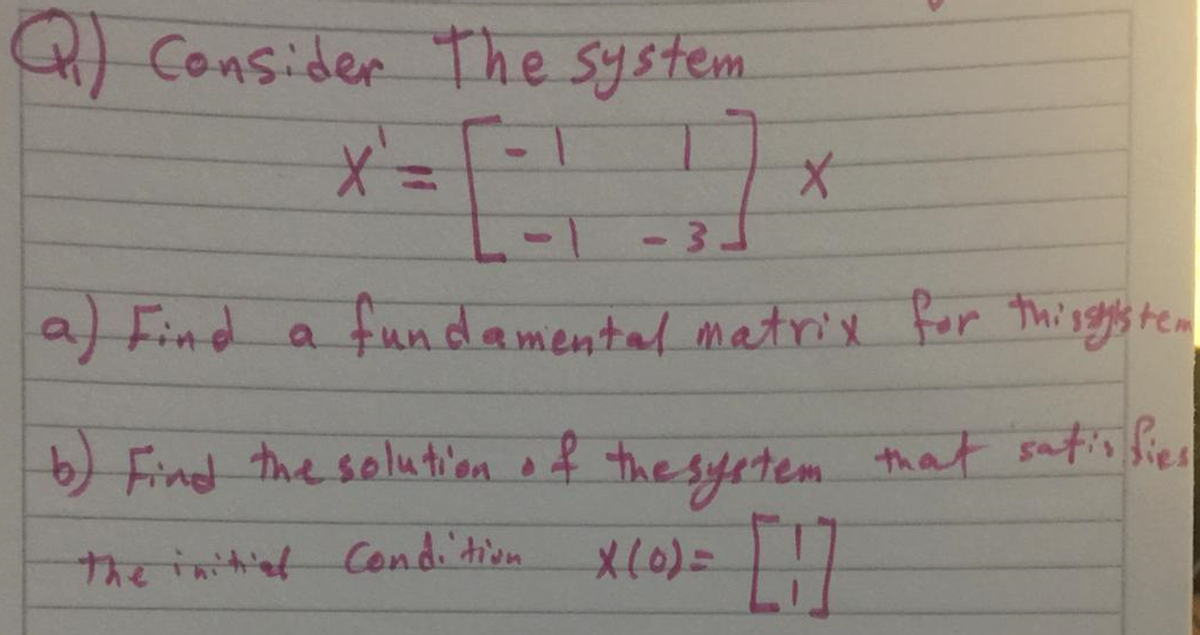 Q1) Consider The system
X' = [ -1 1 ] X
[ -1 -3 ]
a) Find a fundamental matrix for this system
b) Find the solution of the system that satisfies
the initial Condition X(0) = [ 1 ]
[ 1 ]